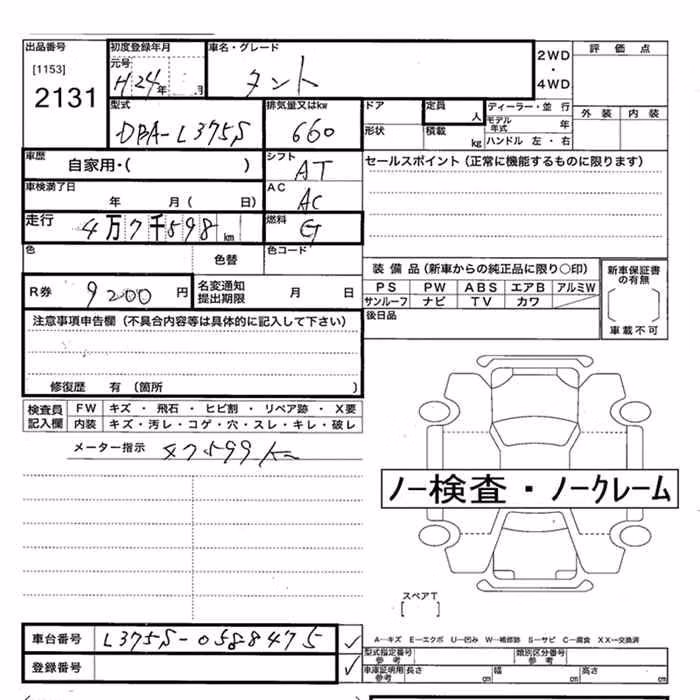 出品番号 初度登録年月 車名・グレード 2WD・4WD 評価点
[1153] 元号
2131 H24年 月 タント
外装 内装
型式 排気量又はkw ドア 定員 人 ディーラー・並行
DBA-L375S 660 形状 積載 kg モデル年式 年
ハンドル 左・右
車歴 自家用・( ) シフト AT セールスポイント (正常に機能するものに限ります)
車検満了日 年 月 ( 日) AC AC
走行 4万7千598km 燃料 G
色 色替 色コード
装備品 (新車からの純正品に限り○印) 新車保証書の有無
R券 9200円 名変通知提出期限 月 日 PS PW ABS エアB アルミW
サンルーフ ナビ TV カワ
注意事項申告欄 (不具合内容等は具体的に記入して下さい) 後日品 車載不可
修復歴 有 (箇所 )
検査員記入欄 FW キズ・飛石・ヒビ割・リペア跡・X要
内装 キズ・汚レ・コゲ・穴・スレ・キレ・破レ
メーター指示 47599k
ノー検査・ノークレーム
スペアT
[ ]
車台番号 L375S-0588475 ✓ A…キズ E…エクボ U…凹み W…補修跡 S…サビ C…腐食 XX…交換済
型式指定番号 参考 類別区分番号 参考
登録番号 ✓ 車庫証明用 参考 長さ cm 幅 cm 高さ cm